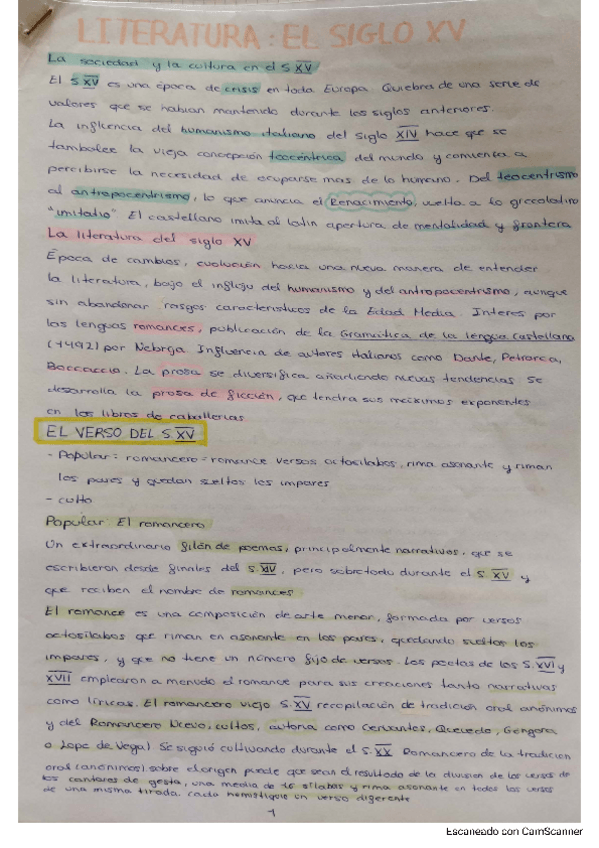 LITERATURA: EL SIGLO XV
La sociedad y la cultura en el S XV
El S XV es una época de crisis en toda Europa. Quiebra de una serie de
valores que se habían mantenido durante los siglos anteriores.
La influencia del humanismo italiano del siglo XIV hace que se
tambalee la vieja concepción teocéntrica del mundo y comienza a
percibirse la necesidad de ocuparse mas de lo humano. Del teocentrismo
al antropocentrismo, lo que anuncia el Renacimiento, vuelta a lo grecolatino
"imitatio" El castellano imita al latin apertura de mentalidad y frontera
La literatura del siglo XV
Época de cambios, evolución hacia una nueva manera de entender
la literatura, bajo el influjo del humanismo y del antropocentrismo, aunque
sin abandonar rasgos característicos de la Edad Media. Interes por
las lenguas romances, publicación de la Gramática de la lengua castellana
(1492) por Nebrija. Influencia de autores italianos como Dante, Petrarca,
Boccaccio. La prosa se diversifica añadiendo nuevas tendencias. Se
desarrolla la prosa de ficción, que tendrá sus máximos exponentes
en los libros de caballerías
EL VERSO DEL S. XV
- Popular: romancero = romance versos octosílabos, rima asonante y riman
los pares y quedan sueltos los impares
- culto
Popular: El romancero
Un extraordinario filón de poemas, principalmente narrativos, que se
escribieron desde finales del S. XIV, pero sobre todo durante el S. XV y
que reciben el nombre de romances
El romance es una composición de arte menor, formada por versos
octosílabos que riman en asonante en los pares, quedando sueltos los
impares, y que no tiene un número fijo de versos. Los poetas de los S. XVI y
XVII emplearon a menudo el romance para sus creaciones tanto narrativas
como líricas. El romancero viejo S. XV recopilación de tradición oral anónimos
y del Romancero Nuevo, cultos, autoria como Cervantes, Quevedo, Góngora
o Lope de Vega) Se siguió cultivando durante el S. XX Romancero de la tradicion
oral (anónimos) sobre el origen puede que sean el resultado de la division de los versos de
los cantares de gesta, una media de 16 sílabas y rima asonante en todos los versos
de una misma tirada, cada hemistiquio un verso diferente
1
Escaneado con CamScanner